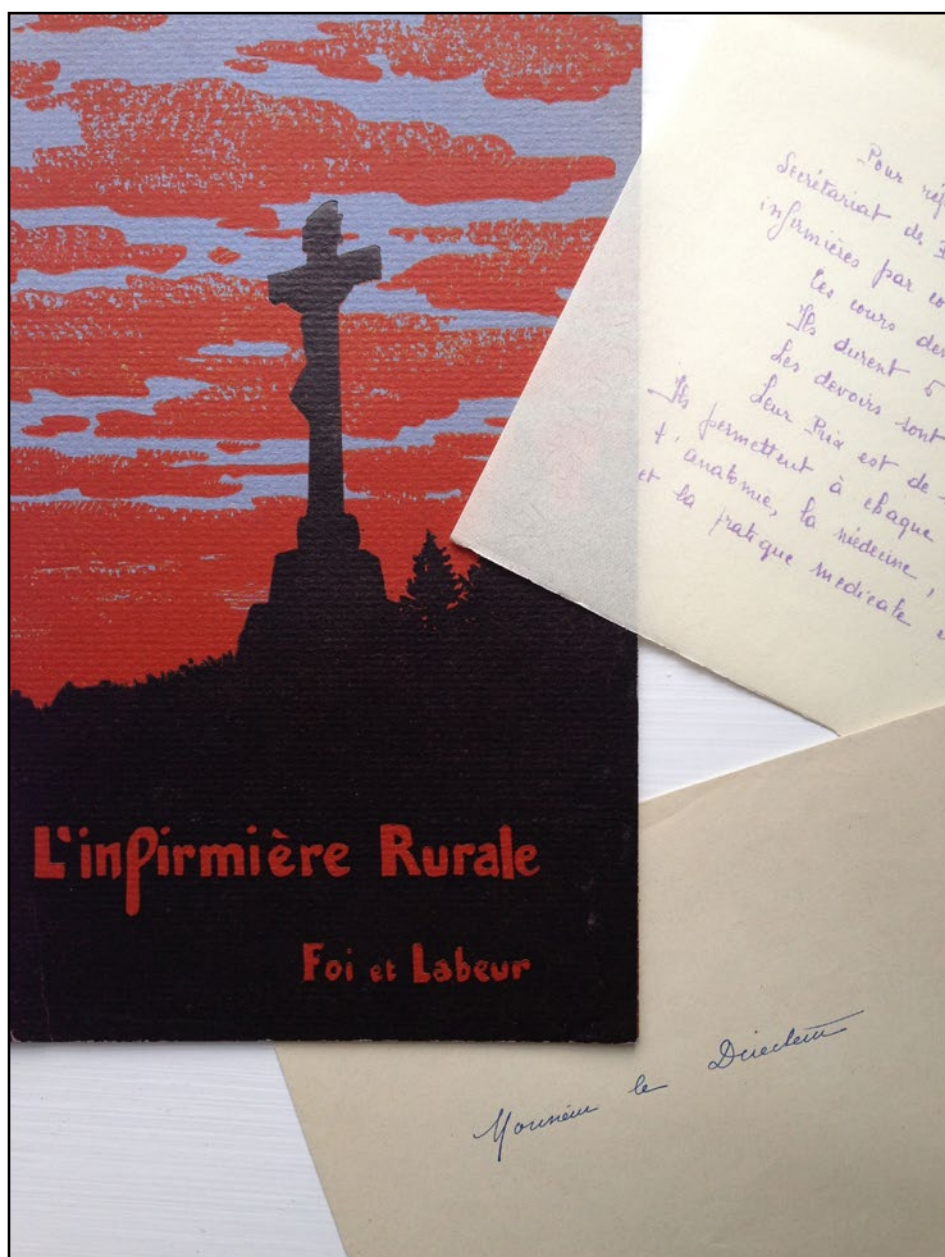 L'infirmière Rurale
Foi et Labeur
Pour
Secrétariat de
infirmières par
Les cours
Ils durent 5
Les devoirs sont
Leur Prix est de
Ils permettent à chaque
l'anatomie, la médecine,
et la pratique medicale
Monsieur le Directeur